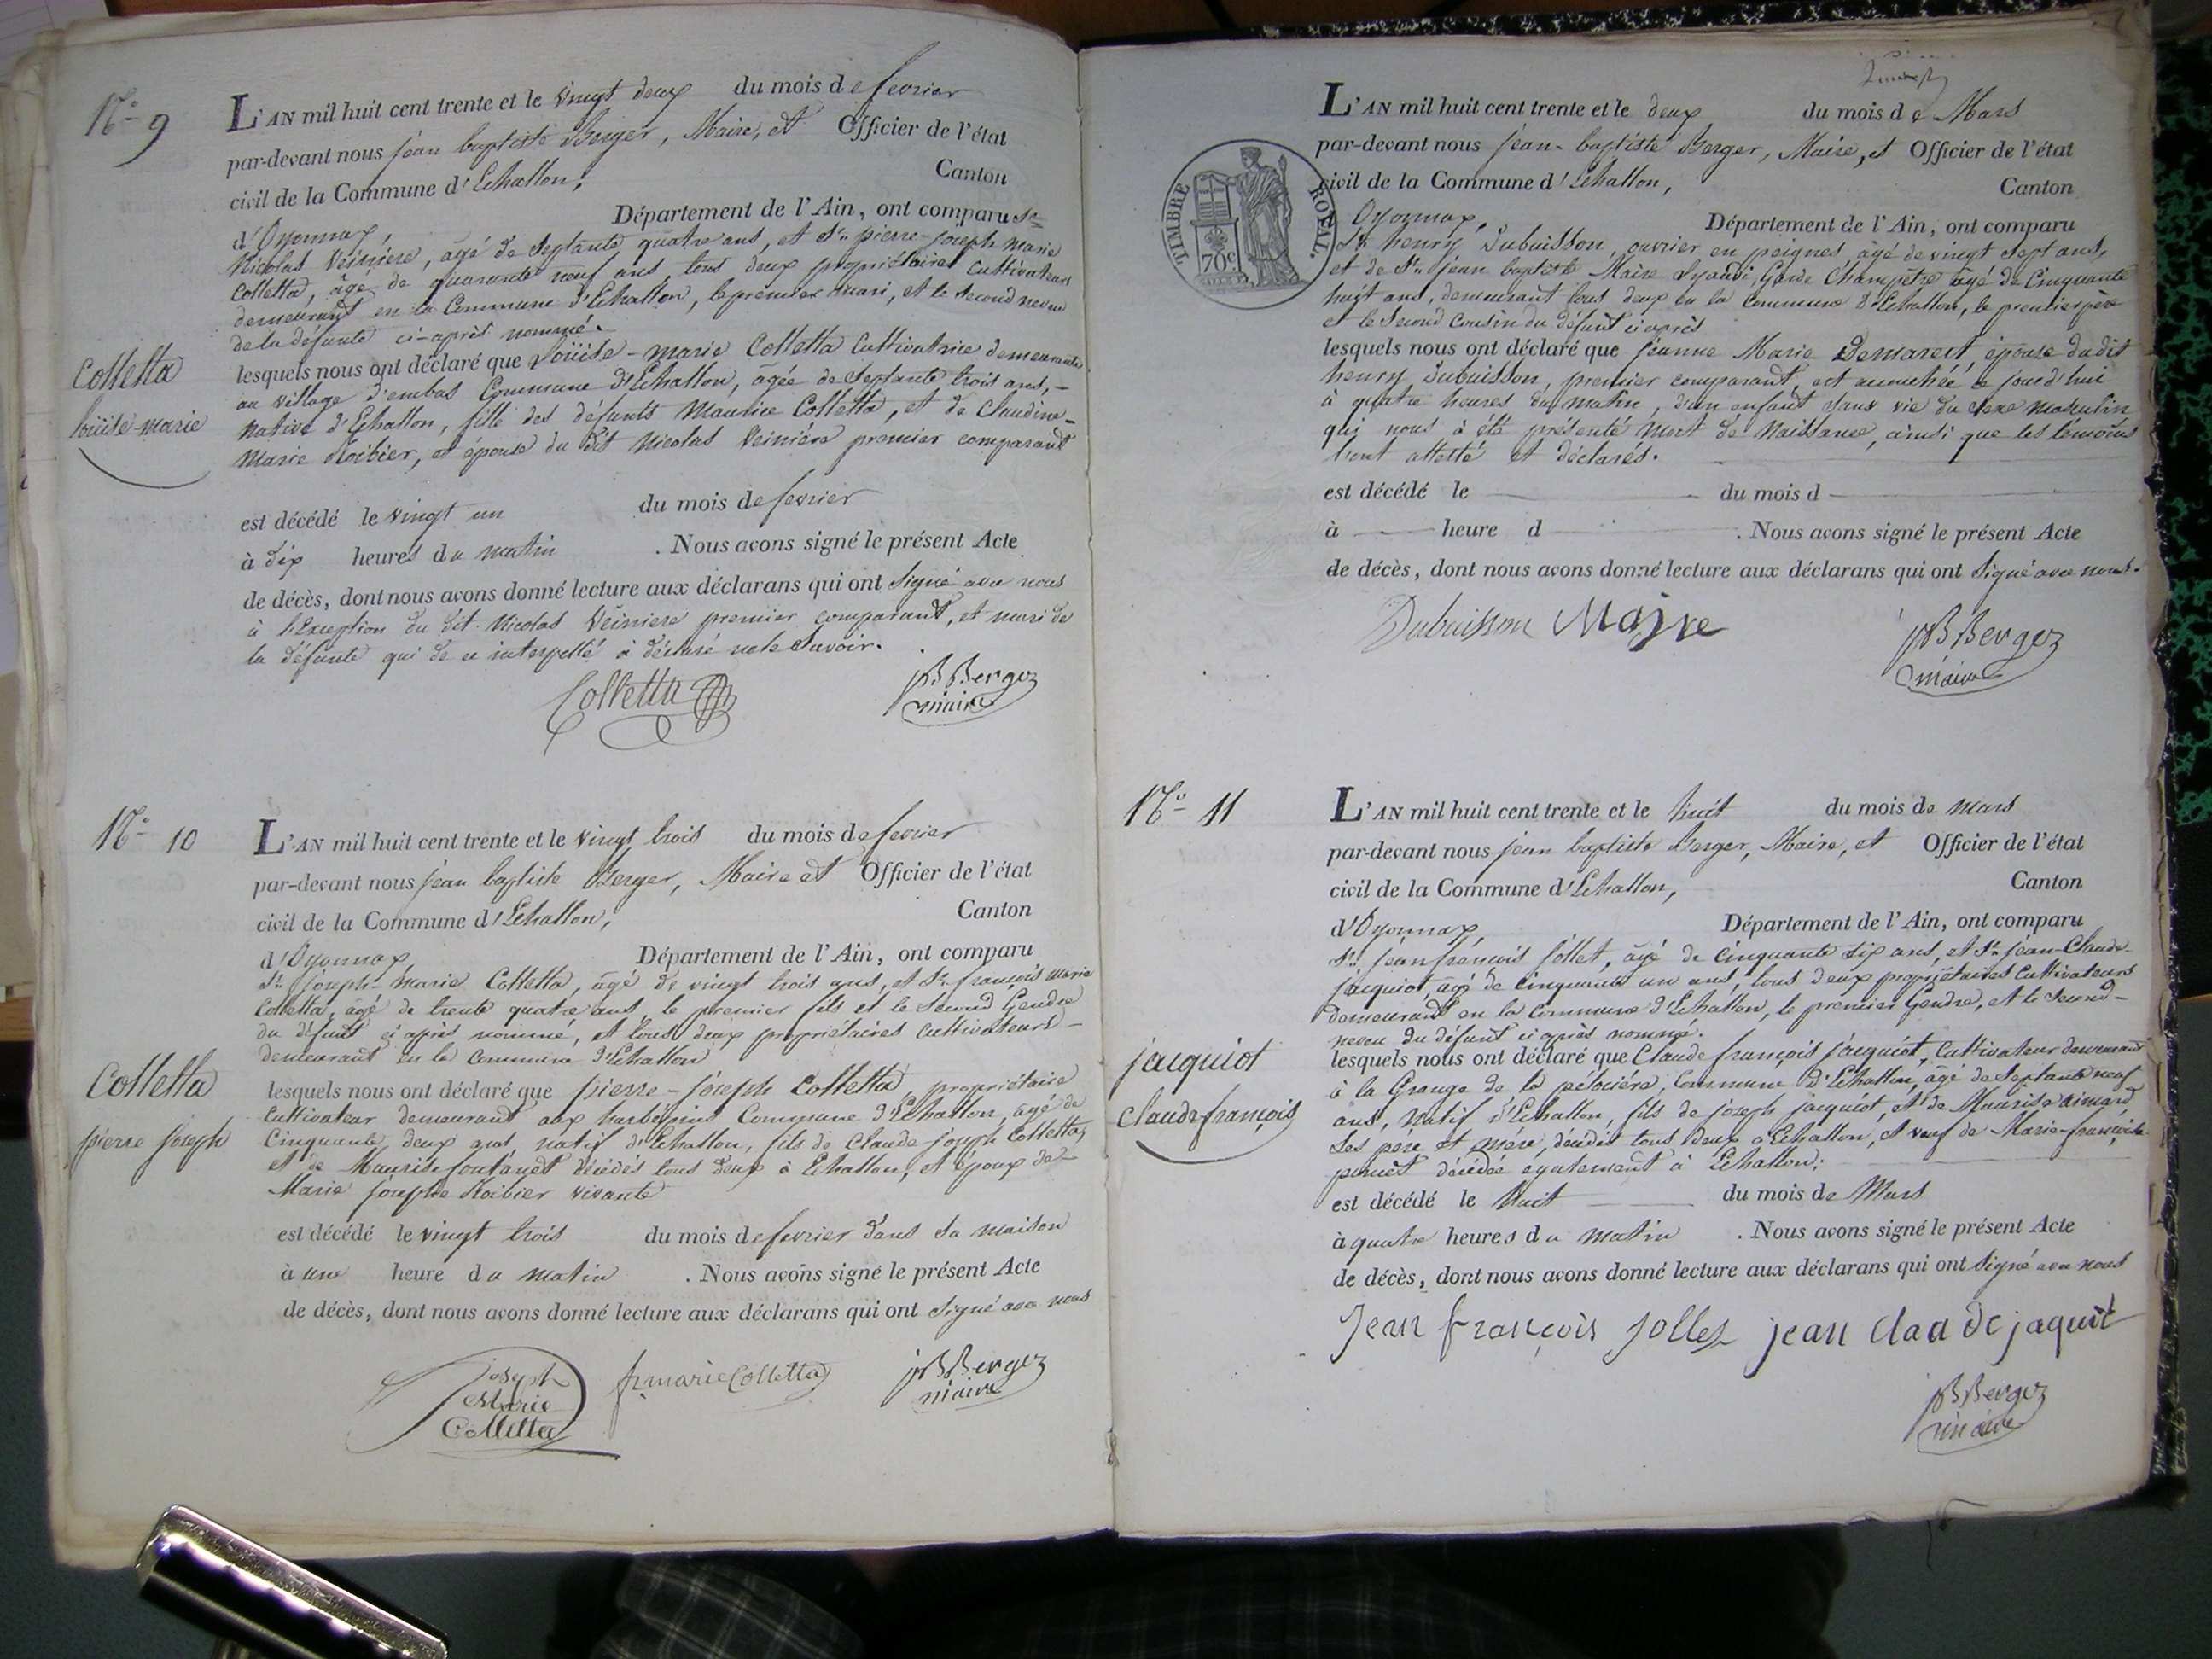 N.° 9
L'AN mil huit cent trente et le vingt deux du mois de fevrier
par-devant nous jean baptiste Berger, Maire, et Officier de l'état
civil de la Commune d'Echallon, Canton
d'Oyonnax, Département de l'Ain, ont comparu Sr
Nicolas Veiniere, âgé de Septante quatre ans, et Sr. pierre-joseph marie
Colletta, âgé de quarante neuf ans, tous deux propriétaires Cultivateurs
demeurant en la Commune d'Echallon, le premier mari, et le Second neveu
de la défunte ci-après nommé.
Colletta
loüise-marie
lesquels nous ont déclaré que loüise-marie Colletta Cultivatrice demeurante
au village d'embas Commune d'Echallon, âgée de Septante trois ans,-
native d'Echallon, fille des défunts Maurice Colletta, et de Claudine-
Marie Roibier, et épouse du dit Nicolas Veiniére premier comparant
est décédé le vingt un du mois de fevrier
à dix heures du matin . Nous avons signé le présent Acte
de décès, dont nous avons donné lecture aux déclarans qui ont Signé avec nous
à l'Exception du dit Nicolas Veiniere premier comparant, et mari de
la défunte qui de ce interpellé à déclaré ne le Savoir.
Colletta
JB Berger
maire
N.° 10
L'AN mil huit cent trente et le vingt trois du mois de fevrier
par-devant nous jean baptiste Berger, Maire et Officier de l'état
civil de la Commune d'Echallon, Canton
d'Oyonnax, Département de l'Ain, ont comparu
Sr. joseph-marie Colletta, âgé de vingt trois ans, et Sr. françois marie
Colletta, âgé de trente quatre ans, le premier fils et le Second Gendre
du défunt ci après nommé, et tous deux propriétaires Cultivateurs-
demeurant en la Commune d'Echallon
Colletta
pierre joseph
lesquels nous ont déclaré que pierre-joseph Colletta, propriétaire
Cultivateur demeurant aux Commune d'Echallon, âgé de
Cinquante deux ans, natif d'Echallon, fils de Claude joseph Colletta,
et de Maurise fontanet décédés tous deux à Echallon, et époux de
Marie josephe Roibier vivante
est décédé le vingt trois du mois de fevrier dans Sa maison
à une heure du matin . Nous avons signé le présent Acte
de décès, dont nous avons donné lecture aux déclarans qui ont Signé avec nous
joseph
Marie
Colletta
fr marie Colletta
JB Berger
maire
TIMBRE ROYAL.
70c
L'AN mil huit cent trente et le deux du mois de Mars
par-devant nous jean-baptiste Berger, Maire, et Officier de l'état
civil de la Commune d'Echallon, Canton
Oyonnax, Département de l'Ain, ont comparu
Sr. henry Dubuisson, ouvrier en peignes, âgé de vingt Sept ans,
et de Sr. jean baptiste Maire Garde Champêtre âgé de Cinquante
huit ans, demeurant tous deux en la Commune d'Echallon, le premier père
et le Second Cousin du défunt ci après
lesquels nous ont déclaré que jeanne Marie Demarest, épouse du dit
henry Dubuisson, premier comparant, est accouchée ce jourd'hui
à quatre heures du matin, d'un enfant Sans vie du Sexe masculin
qui nous à été présenté Mort de Naissance, ainsi que les témoins
l'ont attesté et déclarés.
est décédé le du mois d
à heure d . Nous avons signé le présent Acte
de décès, dont nous avons donné lecture aux déclarans qui ont Signé avec nous.
Dubuisson Majre
JB Berger
maire
N.° 11
L'AN mil huit cent trente et le huit du mois de mars
par-devant nous jean baptiste Berger, Maire, et Officier de l'état
civil de la Commune d'Echallon, Canton
d'Oyonnax, Département de l'Ain, ont comparu
Sr. jean françois jollet, âgé de Cinquante Six ans, et Sr. jean-Claude-
jacquiot, âgé de Cinquante un ans, tous deux propriétaires Cultivateurs
demeurant en la Commune d'Echallon, le premier Gendre, et le Second-
neveu du défunt ci après nommé.
jacquiot
Claude françois
lesquels nous ont déclaré que Claude françois jacquiot, Cultivateur demeurant
à la Grange de la pélociére, Commune d'Echallon, âgé de Septante neuf
ans, Natif d'Echallon, fils de joseph jacquiot, et de Maurise aimard
Ses père et mère, décédés tous deux à Echallon, et veuf de Marie-françoise
décédée également à Echallon;
est décédé le huit du mois de Mars
à quatre heures du matin . Nous avons signé le présent Acte
de décès, dont nous avons donné lecture aux déclarans qui ont Signé avec nous
Jean françois jollet jean claude jaquiot
JB Berger
maire